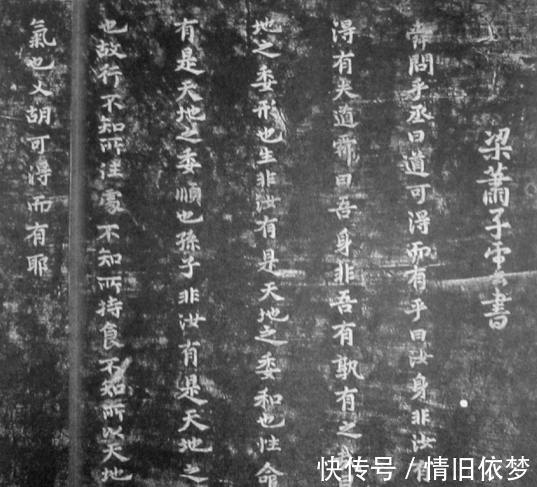 梁蕭子雲書
舜問乎丞曰道可得而有乎曰汝身非汝有
得有夫道舜曰吾身非吾有孰有之
地之委形也生非汝有是天地之委和也性命
有是天地之委順也孫子非汝有是天地之
也故行不知所往處不知所持食不知所以天地
氣也又胡可得而有耶
快传号／情旧依梦